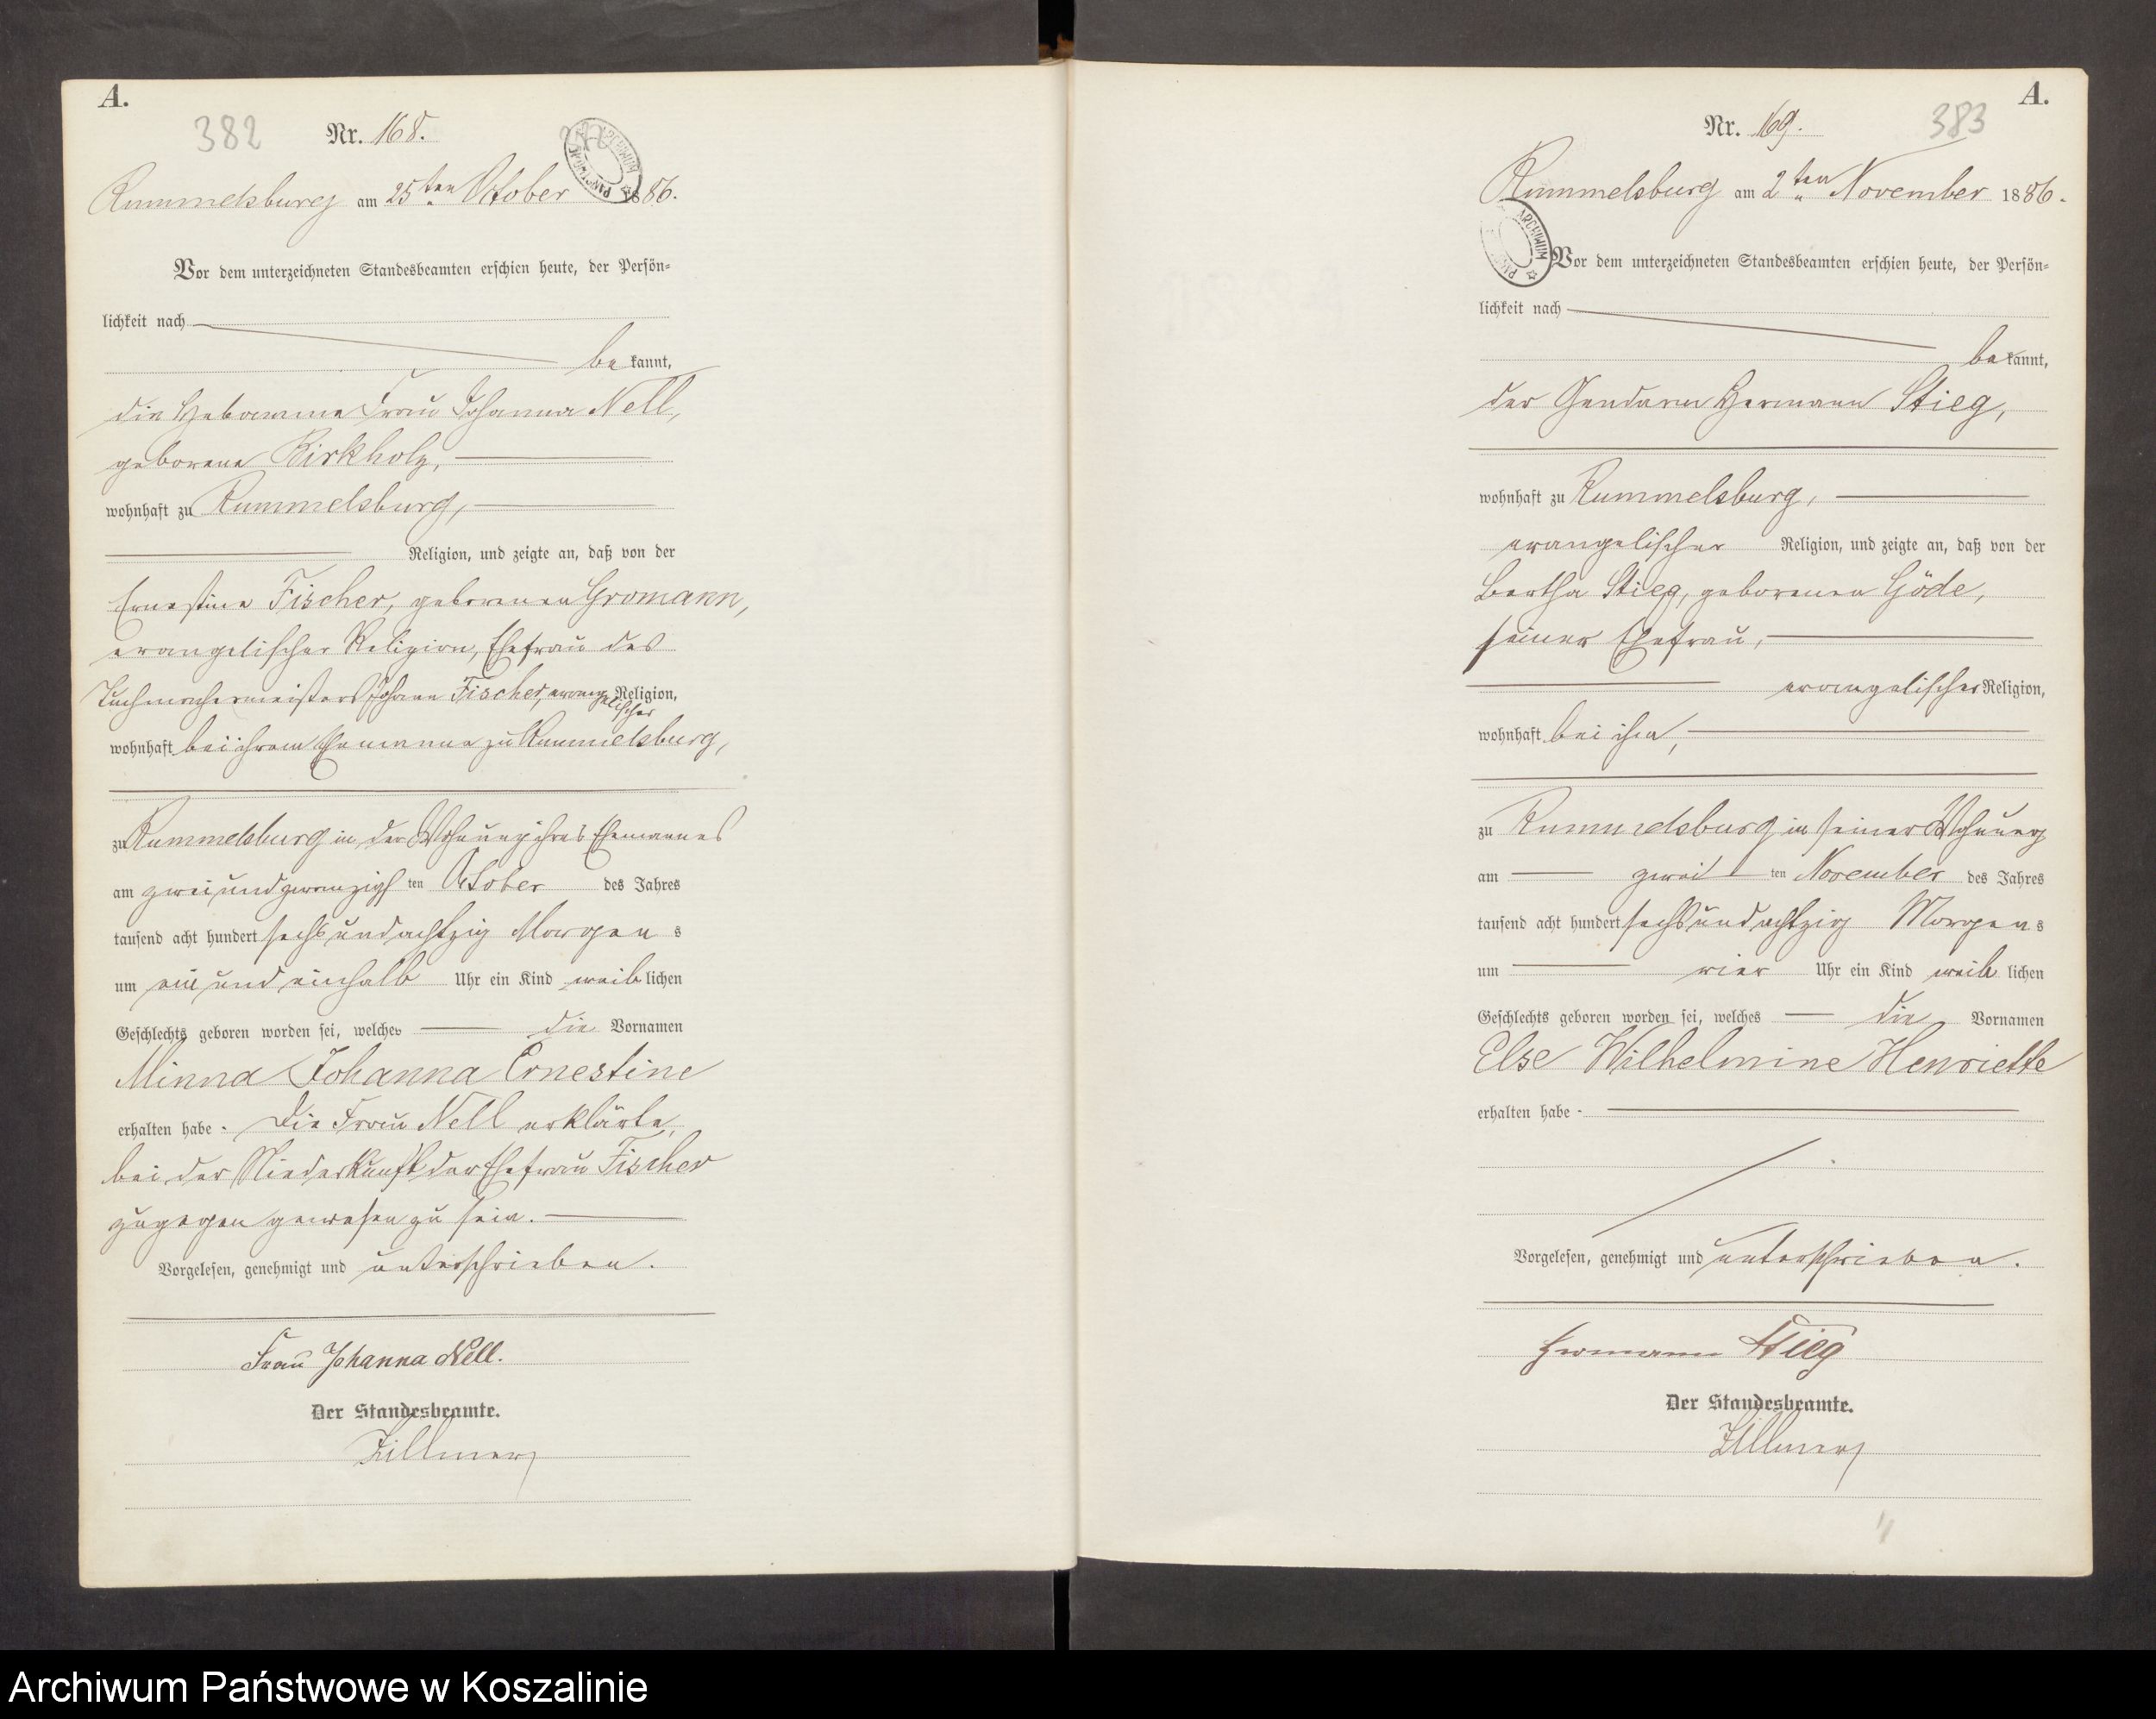 A.
382
Nr. 168.
Rummelsburg am 25ten October 1886.
Vor dem unterzeichneten Standesbeamten erschien heute, der Persön=
lichkeit nach
be kannt,
die Hebamme Frau Johanna Nell,
geborene Birkholz,
wohnhaft zu Rummelsburg,
Religion, und zeigte an, daß von der
Ernestine Fischer, geborenen Gromann,
evangelischer Religion, Ehefrau des
Tuchmachermeisters Johann Fischer, evangelischer Religion,
wohnhaft bei ihrem Ehemanne zu Rummelsburg,
zu Rummelsburg in der Wohnung ihres Ehemannes
am zweiundzwanzigsten October des Jahres
tausend acht hundert sechsundachtzig Morgens
um ein und einhalb Uhr ein Kind weiblichen
Geschlechts geboren worden sei, welches die Vornamen
Minna Johanna Ernestine
erhalten habe. Die Frau Nell erklärte,
bei der Niederkunft der Ehefrau Fischer
zugegen gewesen zu sein.
Vorgelesen, genehmigt und unterschrieben.
Frau Johanna Nell.
Der Standesbeamte.
Zillmer
A.
383
Nr. 169.
Rummelsburg am 2ten November 1886.
ARCHIWUM
Vor dem unterzeichneten Standesbeamten erschien heute, der Persön=
lichkeit nach
be kannt,
der Gendarm Hermann Stieg,
wohnhaft zu Rummelsburg,
evangelischer Religion, und zeigte an, daß von der
Bertha Stieg, geborenen Göde,
seiner Ehefrau,
evangelischer Religion,
wohnhaft bei ihm,
zu Rummelsburg in seiner Wohnung
am zweiten November des Jahres
tausend acht hundert sechsundachtzig Morgens
um vier Uhr ein Kind weiblichen
Geschlechts geboren worden sei, welches die Vornamen
Else Wilhelmine Henriette
erhalten habe.
Vorgelesen, genehmigt und unterschrieben.
Hermann Stieg
Der Standesbeamte.
Zillmer
Archiwum Państwowe w Koszalinie